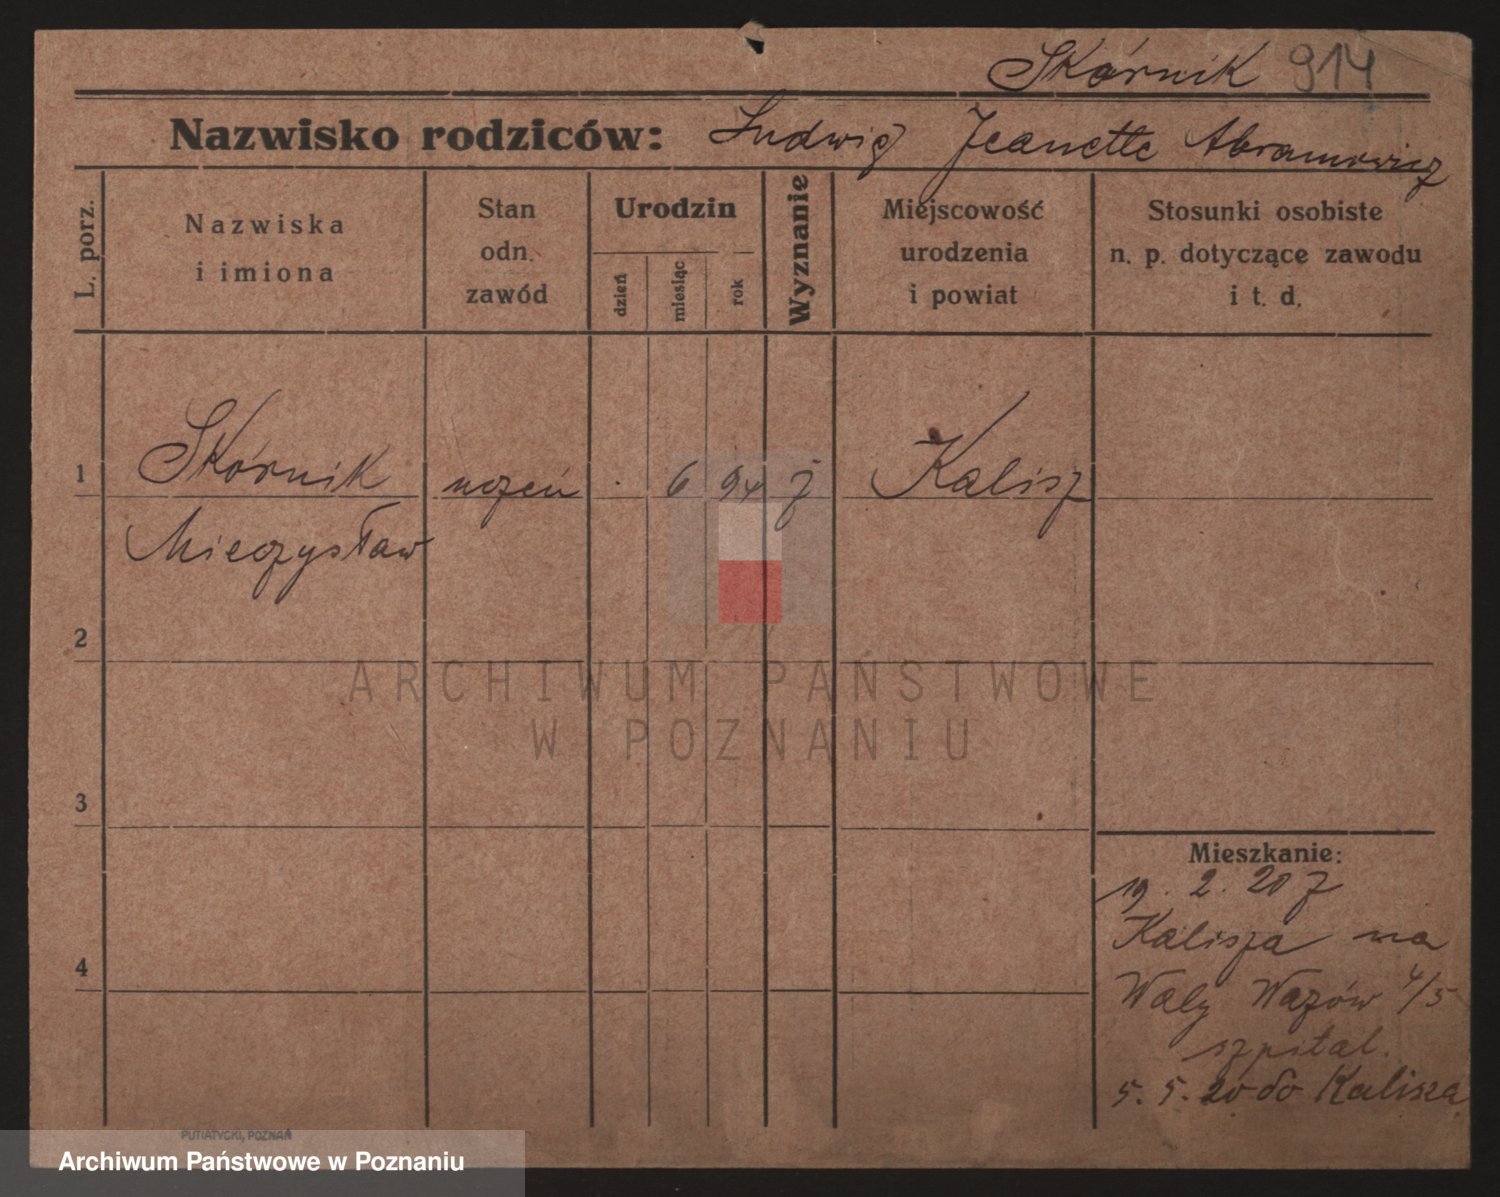 Skórnik 914
Nazwisko rodziców: Ludwig Jeanette Abramowicz
L. porz.
Nazwiska
i imiona
Stan
odn.
zawód
Urodzin
dzień
miesiąc
rok
Wyznanie
Miejscowość
urodzenia
i powiat
Stosunki osobiste
n. p. dotyczące zawodu
i t. d.
1 Skórnik uczeń . 6 94 j Kalisz
Mieczysław
2
3
4
Mieszkanie:
19. 2. 20 z
Kalisza na
Waly Wazów 4/5
szpital.
5. 5. 20 do Kalisza
ARCHIWUM PAŃSTWOWE
W POZNANIU
PUTIATYCKI, POZNAŃ
Archiwum Państwowe w Poznaniu